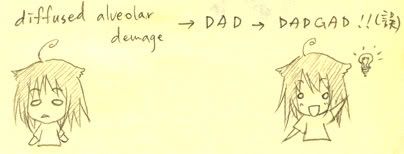 diffused alveolar
demage → DAD → DADGAD !!(誤)